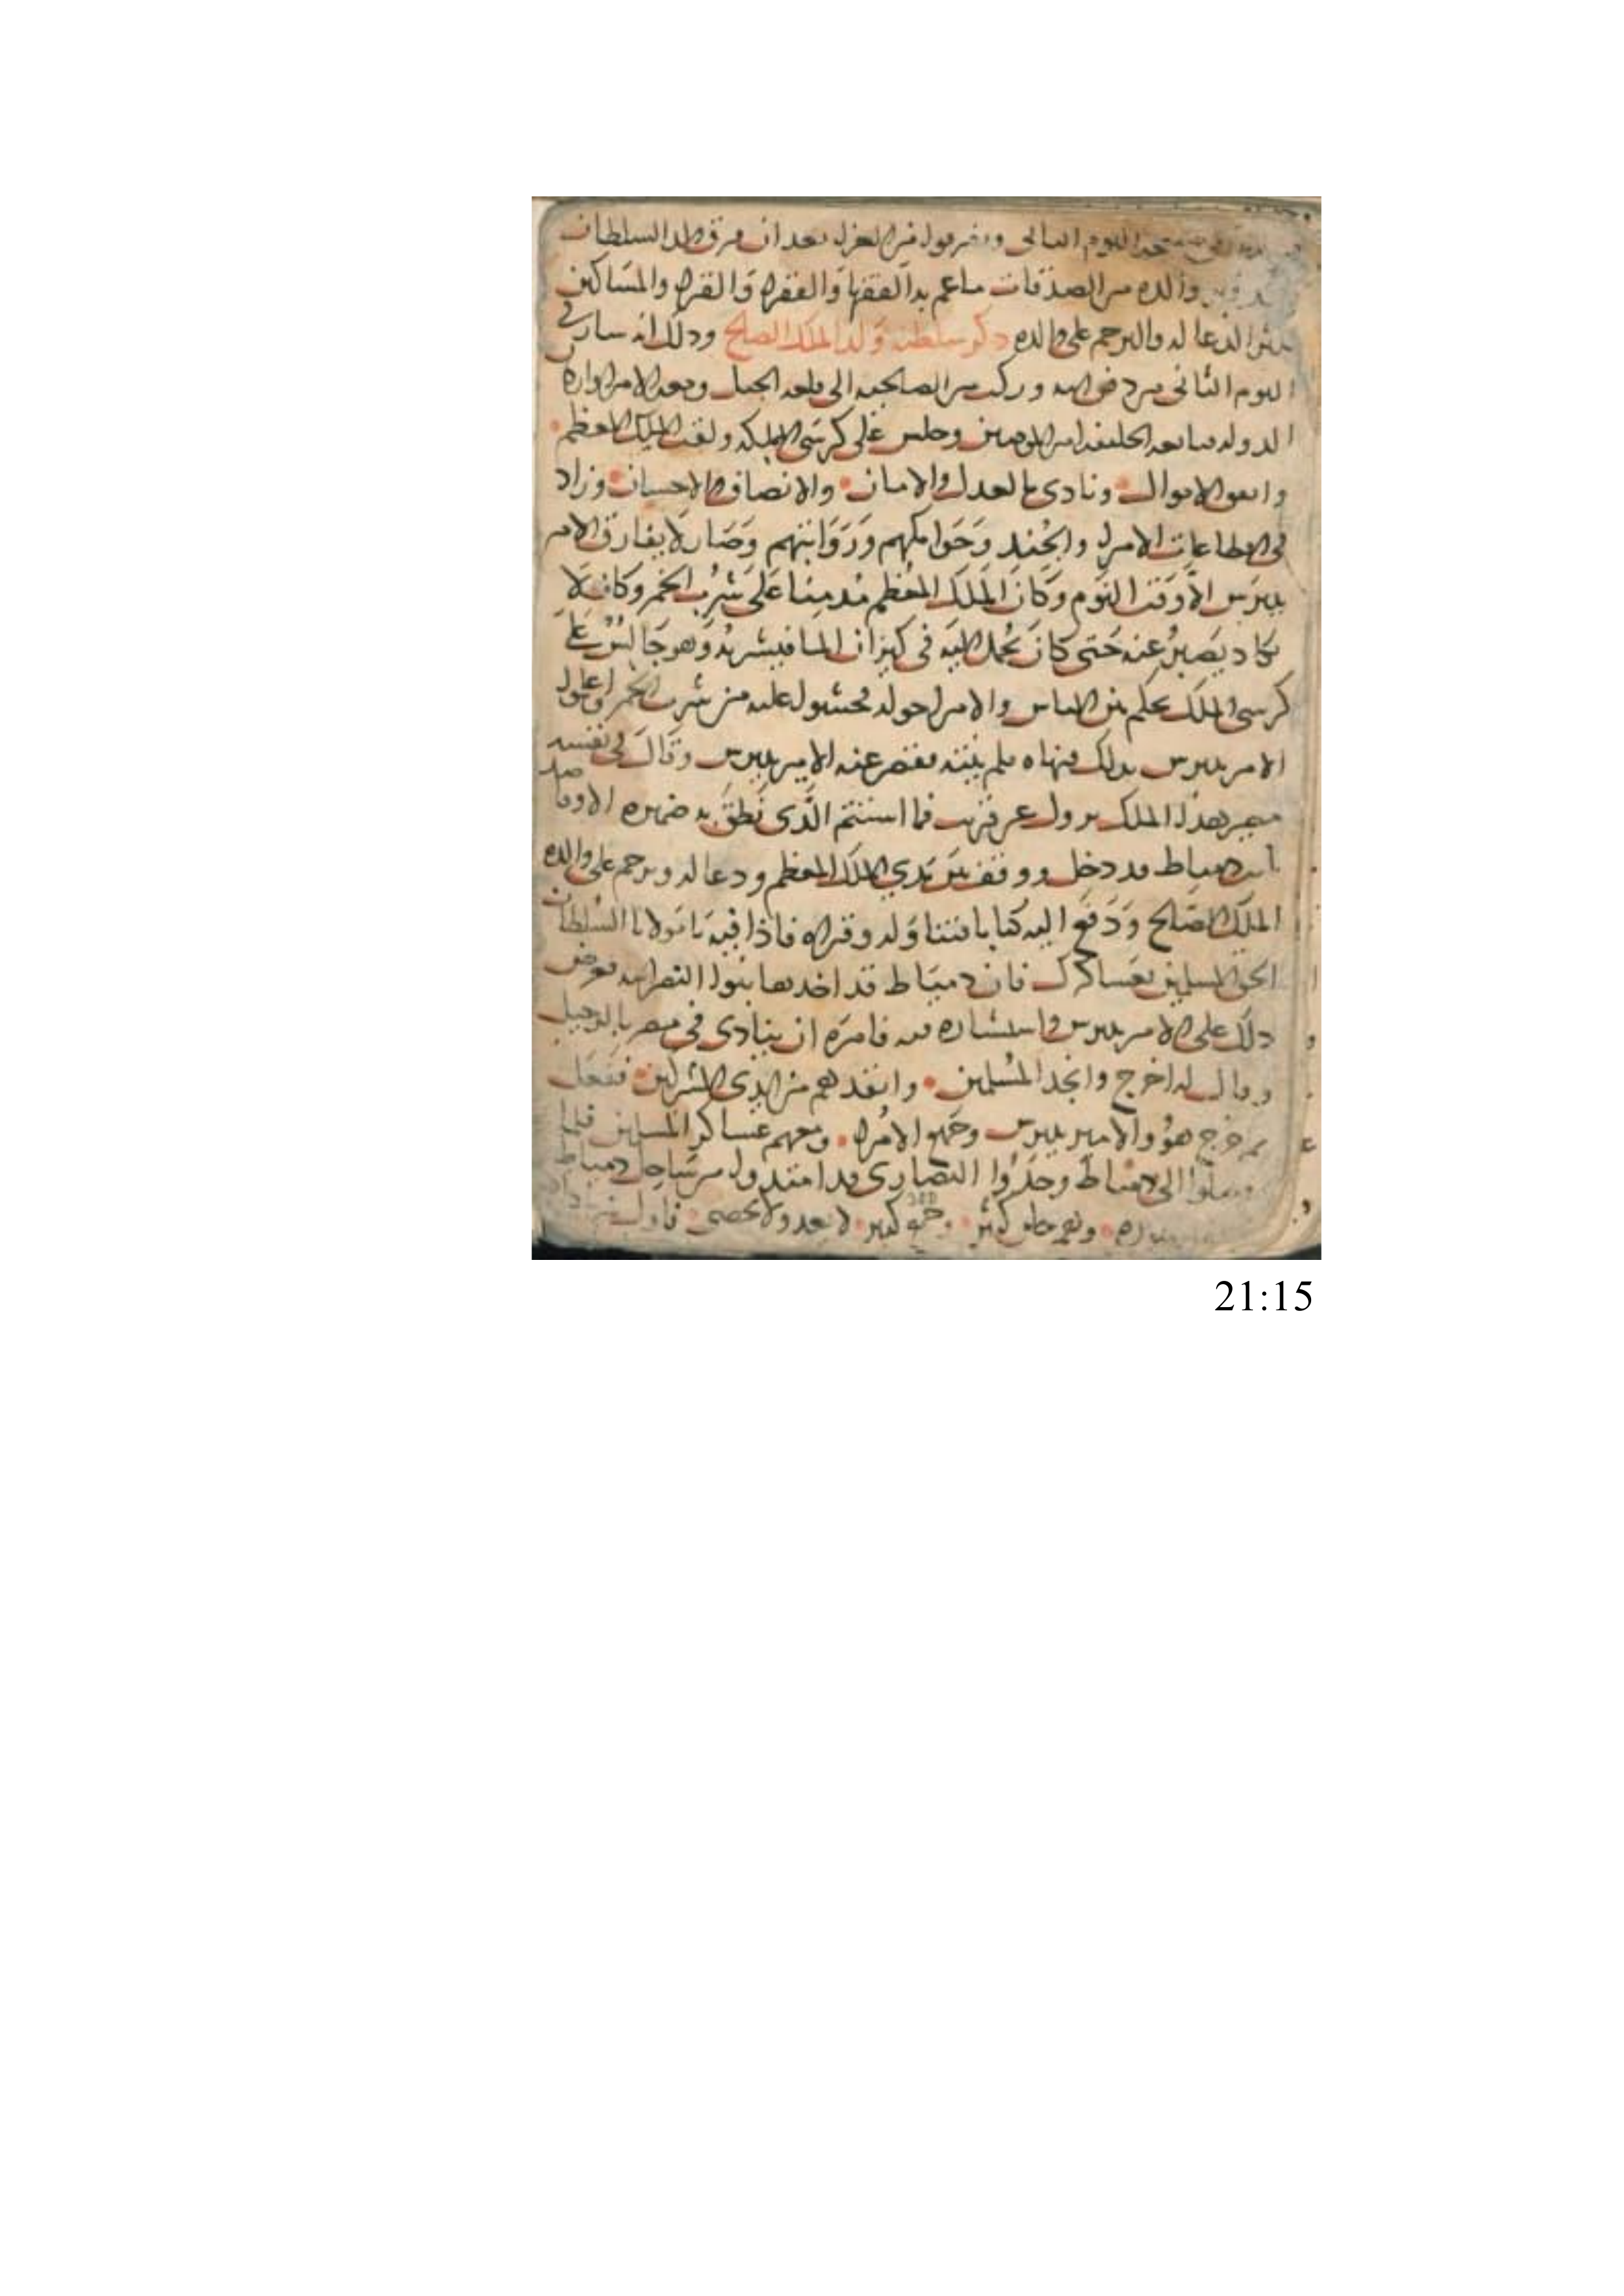 اليوم التالى وتفرقوا من العزا بعد ان فرق ولد السلطان
والده من الصدقات ما عم به الفقها والفقرا والقرا والمساكين
الدعا له والترحم على والده ذكر سلطنة ولد الملك الصالح وذلك انه سار فى
اليوم الثانى من دفن ابيه وركب من الصالحيه الى قلعه الجبل ومعه الامرا وارباب
الدوله فبايعه الخليفه امير المومنين وجلس على كرسى المملكه ولقب الملك المعظم
وانفق الاموال ونادى بالعدل والامان والانصاف والاحسان وزاد
فى اقطاعات الامرا والجند وجوامكهم ورواتبهم وصار لا يفارق الامير
بيبرس الا وقت النوم وكان الملك المعظم مدمنا على شرب الخمر وكان لا
يكاد يصبر عنه حتى كان يحمل اليه فى كيزان الما فيشربه وهو جالس على
كرسى الملك يحكم بين الناس والامرا حوله فخشوا عليه من شرب الخمر واعلموا
الامير بيبرس بذلك فنهاه فلم ينته فغضب عنه الامير بيبرس وقال فى نفسه
هذا الملك يزول عن قريب فما استتم الذى نطق به ضميره الا وقاصد
دمياط قد دخل ووقف بين يدي الملك المعظم ودعا له وترحم على والده
الملك الصالح ودفع اليه كتابا فتناوله وقراه فاذا فيه يا مولانا السلطان
الحق المسلمين بعساكرك فان دمياط قد اخدها بنوا النصرانيه فعرض
ذلك على الامير بيبرس واستشاره فيه فامره ان ينادى فى مصر بالرحيل
وقال له اخرج وانجد المسلمين وانقدهم من ايدى المشركين ففعل
ثم خرج هوُ والامير بيبرس وجميع الامرا ومعهم عساكر المسلمين فلما
وصلوا الى دمياط وجدوا النصارى قد امتدوا من ساحل دمياط
وهم خلق كثير وجمع كبير لا يعد ولا يحصى
21:15